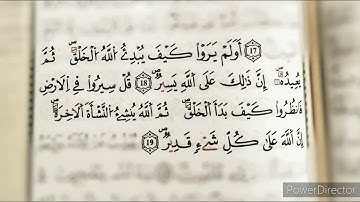 ﴿17﴾ أَوَلَمْ يَرَوْا كَيْفَ يُبْدِئُ اللَّهُ الْخَلْقَ ثُمَّ
يُعِيدُهُ ۚ إِنَّ ذَٰلِكَ عَلَى اللَّهِ يَسِيرٌ ﴿18﴾ قُلْ سِيرُوا فِي الْأَرْضِ
فَانْظُرُوا كَيْفَ بَدَأَ الْخَلْقَ ۚ ثُمَّ اللَّهُ يُنْشِئُ النَّشْأَةَ الْآخِرَةَ ۚ
إِنَّ اللَّهَ عَلَىٰ كُلِّ شَيْءٍ قَدِيرٌ ﴿19﴾
PowerDirector